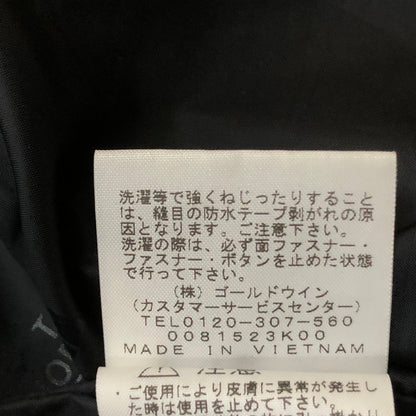 洗濯等で強くねじったりすること
は、縫目の防水テープ剥がれの原
因となります。ご注意下さい。
洗濯の際は、必ず面ファスナー・
ファスナー・ボタンを止めた状態
で行って下さい。
(株) ゴールドウイン
(カスタマーサービスセンター)
TEL0120-307-560
0081523K00
MADE IN VIETNAM
・ご使用により皮膚に異常が発生し
た時は使用を止めて下さい。